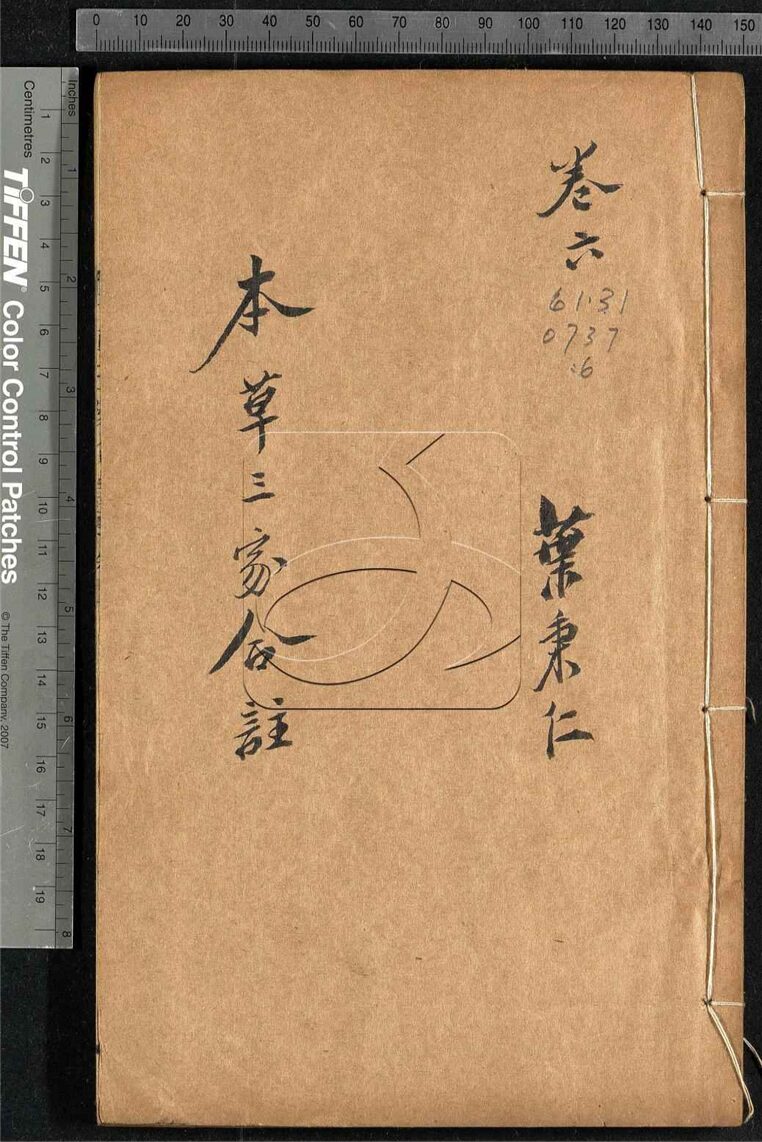 0 10 20 30 40 50 60 70 80 90 100 110 120 130 140 150
卷六
6131
0737
:6
葉秉仁
本草三家合註
Inches
1 2 3 4 5 6 7 8
Centimetres
1 2 3 4 5 6 7 8 9 10 11 12 13 14 15 16 17 18 19
TIFFEN® Color Control Patches
© The Tiffen Company, 2007